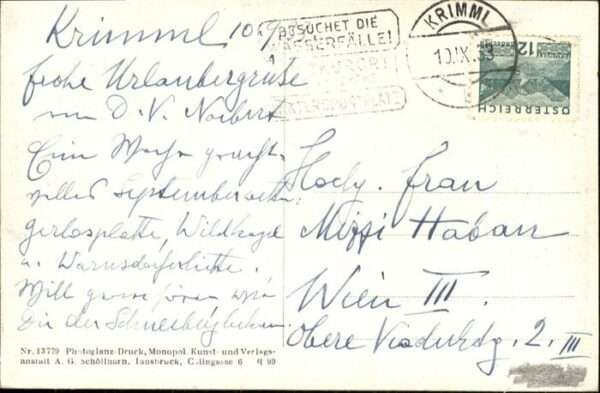 Krimml 10/9
frohe Urlaubergrüße
von D. V. Norbert
Eine Woche pracht-
volles Septemberwetter.
Gerlosplatte, Wildkogel
u. Warnsdorferhütte.
Will
Dir der
BESUCHET DIE
WASSERFÄLLE!
KRIMML
10.IX.33
12
ÖSTERREICH
Hochg. Frau
Mizzi Haban
Wien III.
Obere Viaduktg. 2. III
Nr. 13779 Photoglanz-Druck, Monopol, Kunst- und Verlags-
anstalt A. G. Schöllhorn, Innsbruck, C.lingasse 6